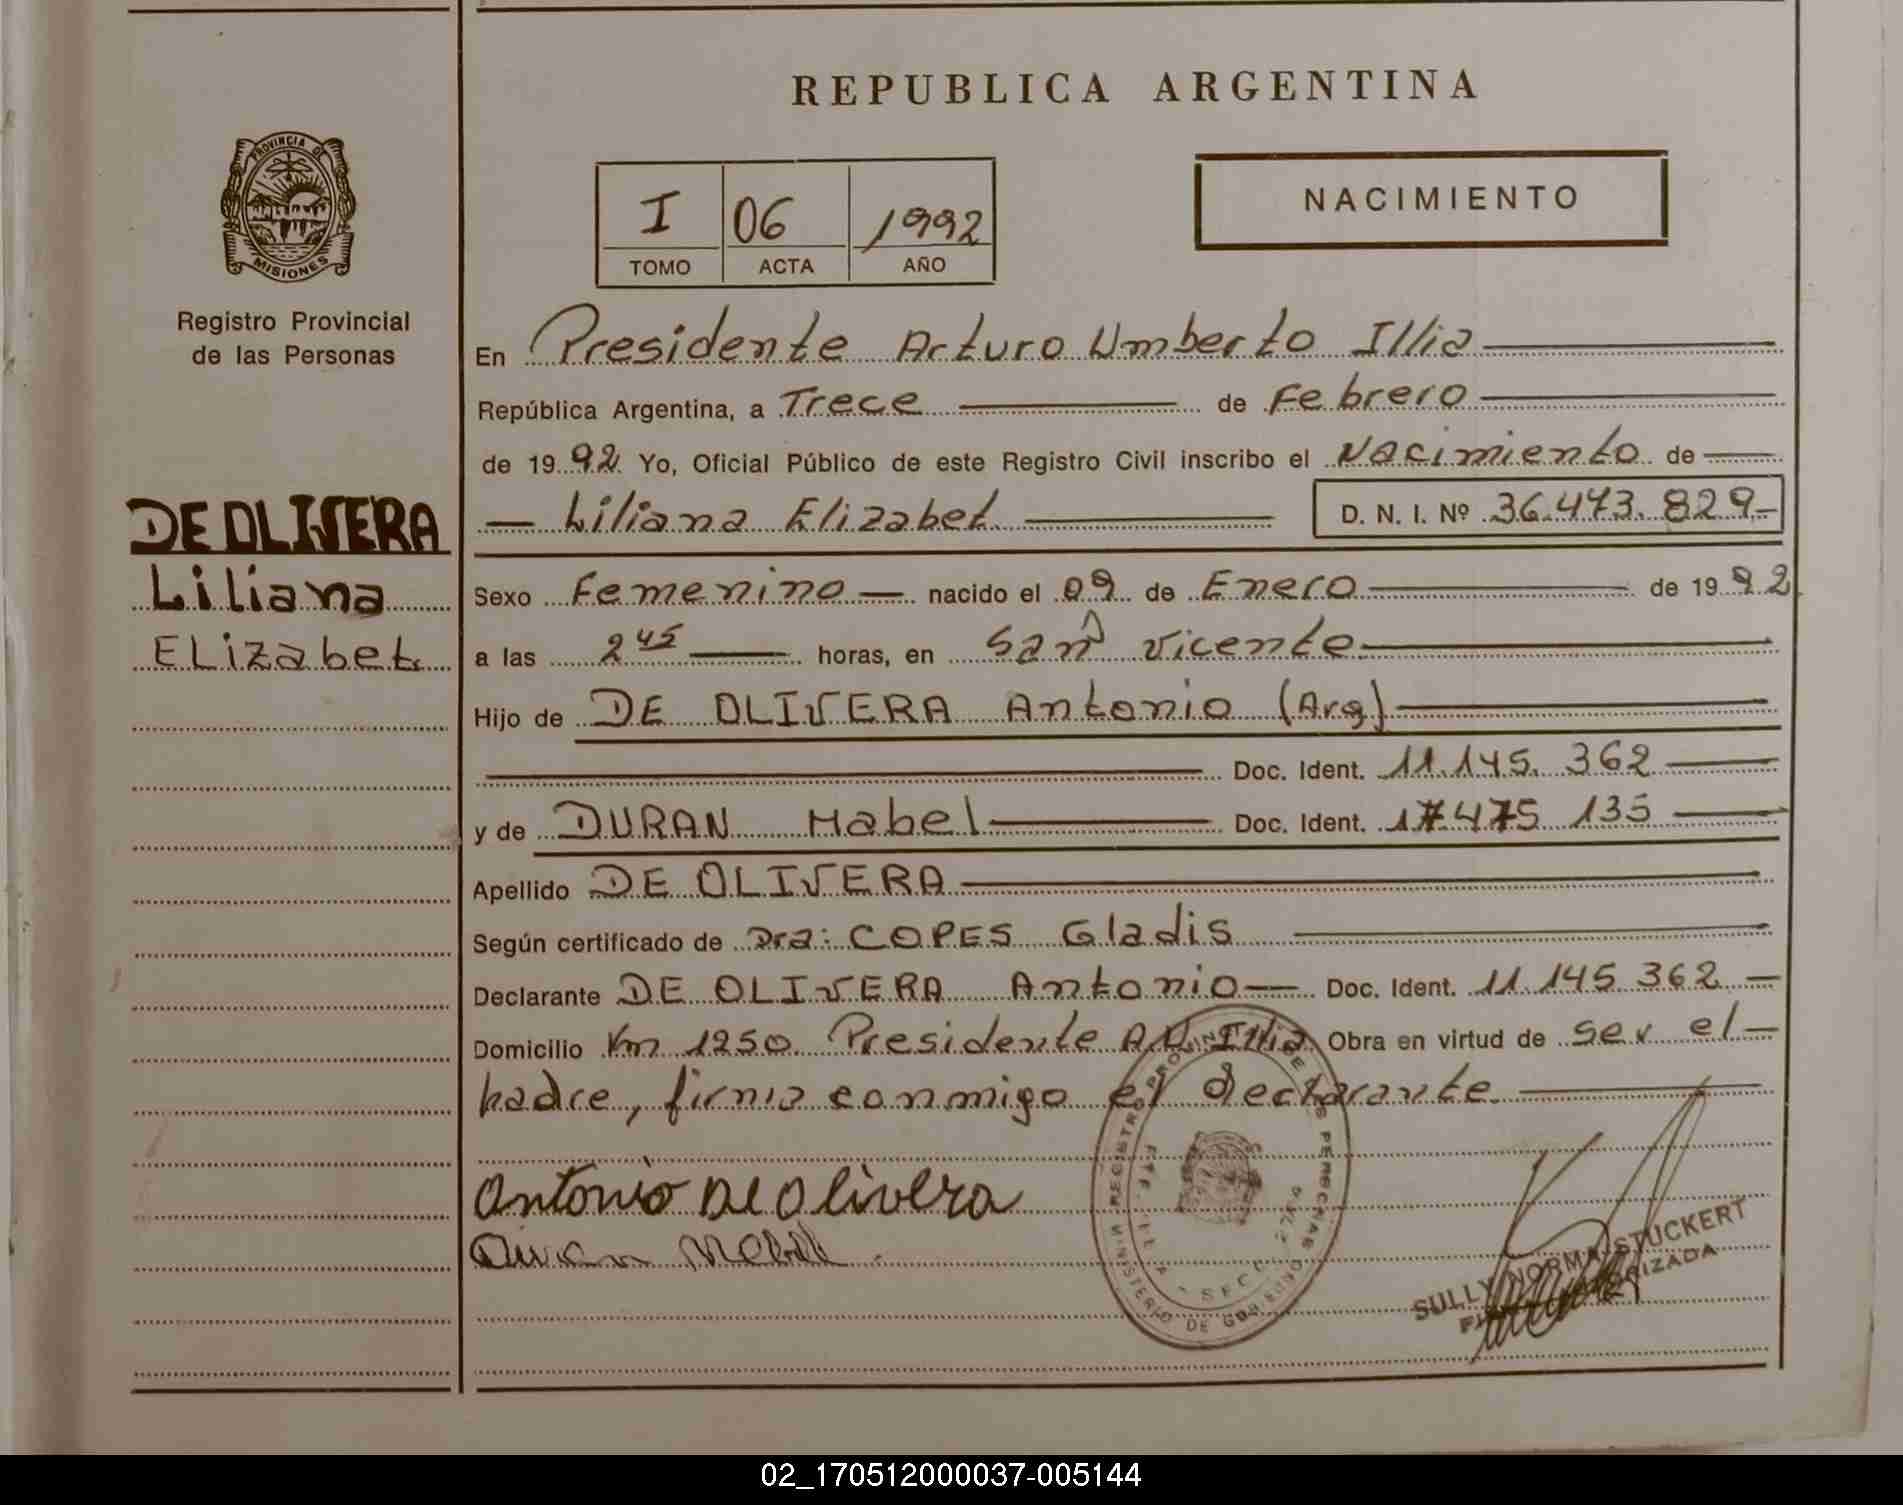 REPUBLICA ARGENTINA
PROVINCIA DE
MISIONES
Registro Provincial
de las Personas
I 06 1992
TOMO ACTA AÑO
NACIMIENTO
En Presidente Arturo Umberto Illia
República Argentina, a Trece de Febrero
de 1992 Yo, Oficial Público de este Registro Civil inscribo el Nacimiento de
Liliana Elizabet D. N. I. Nº 36.473.829-
DE OLIVERA
Liliana
Elizabet
Sexo Femenino nacido el 09 de Enero de 1992
a las 2 45 horas, en San Vicente
Hijo de DE OLIVERA Antonio (Arg)
Doc. Ident. 11.145.362
y de DURAN Mabel Doc. Ident. 17 475 135
Apellido DE OLIVERA
Según certificado de Dra: COPES Gladis
Declarante DE OLIVERA Antonio Doc. Ident. 11.145.362
Domicilio Km 1250 Presidente A.U. Illia Obra en virtud de ser el
padre, firma conmigo el declarante.
Antonio De Olivera
Duran Mabel
MINISTERIO DE GOBIERNO
REGISTRO PROVINCIAL DE LAS PERSONAS
SULLY NORMA STUCKERT
AUTORIZADA
02_170512000037-005144